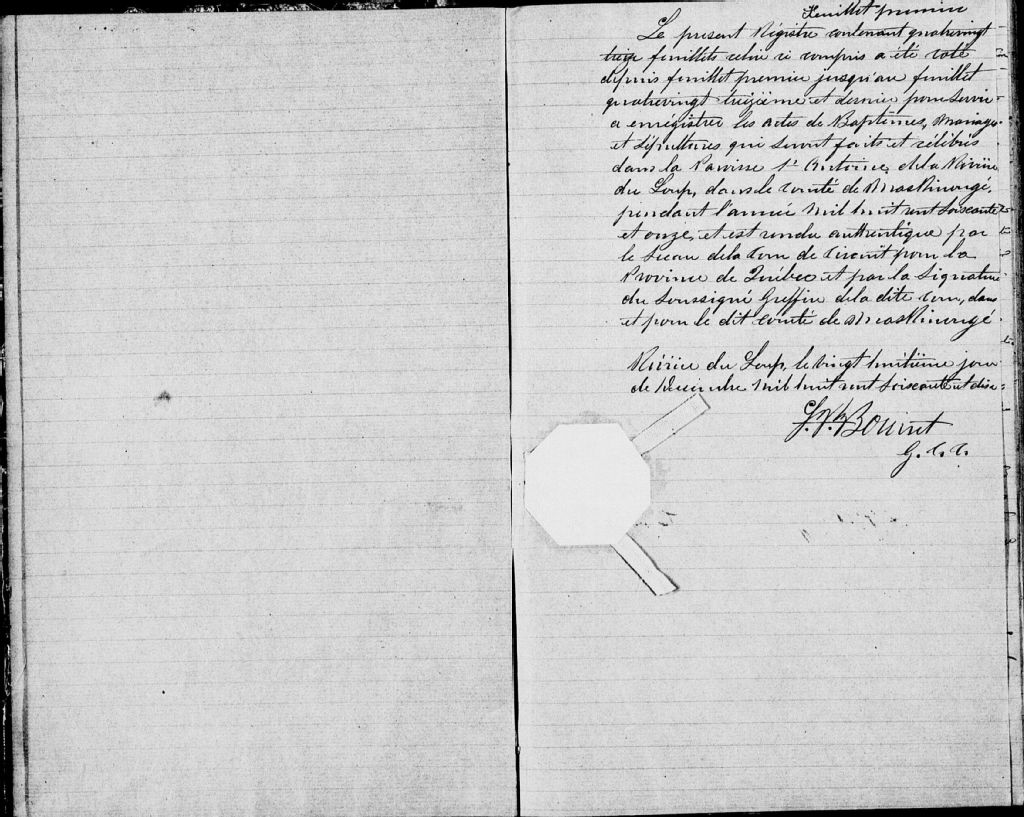 Feuillet premier
Le present Régistre contenant quatrevingt
treize feuillets celui ci compris a été coté
depuis feuillet premier jusqu'au feuillet
quatrevingt treizième et dernier pour servir
a enrégistrer les actes de Baptêmes, Mariages
et Sépultures qui seront faits et célébrés
dans la Paroisse St Antoine de la Rivière
du Loup, dans le Comté de Maskinongé,
pendant l'année Mil huit cent Soixante
et onze, et est rendu authentique par
le Sceau de la Cour de Circuit pour la
Province de Québec et par la Signature
du Soussigné Greffier de la dite Cour, dans
et pour le dit Comté de Maskinongé
Rivière du Loup, le vingt huitième jour
de Décembre Mil huit cent Soixante et dix
Bourret
G. C. C.